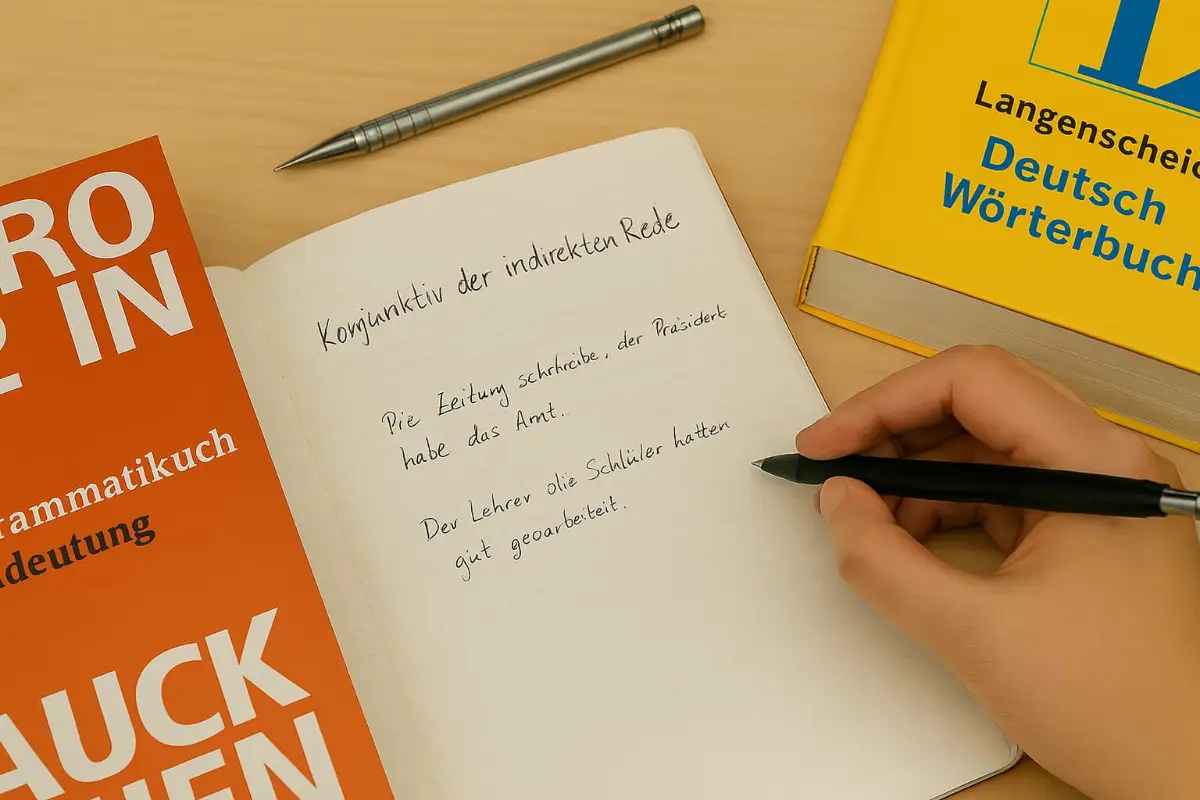 RO
IN
rammatikuch
deutung
AUCK
HEN
Konjunktiv der indirekten Rede
Die Zeitung schrhreibe, der Präsident
habe das Amt..
Der Lehrer olie Schlüler hatten
gut geoarbeiteit.
Langenscheid
Deutsch
Wörterbuch